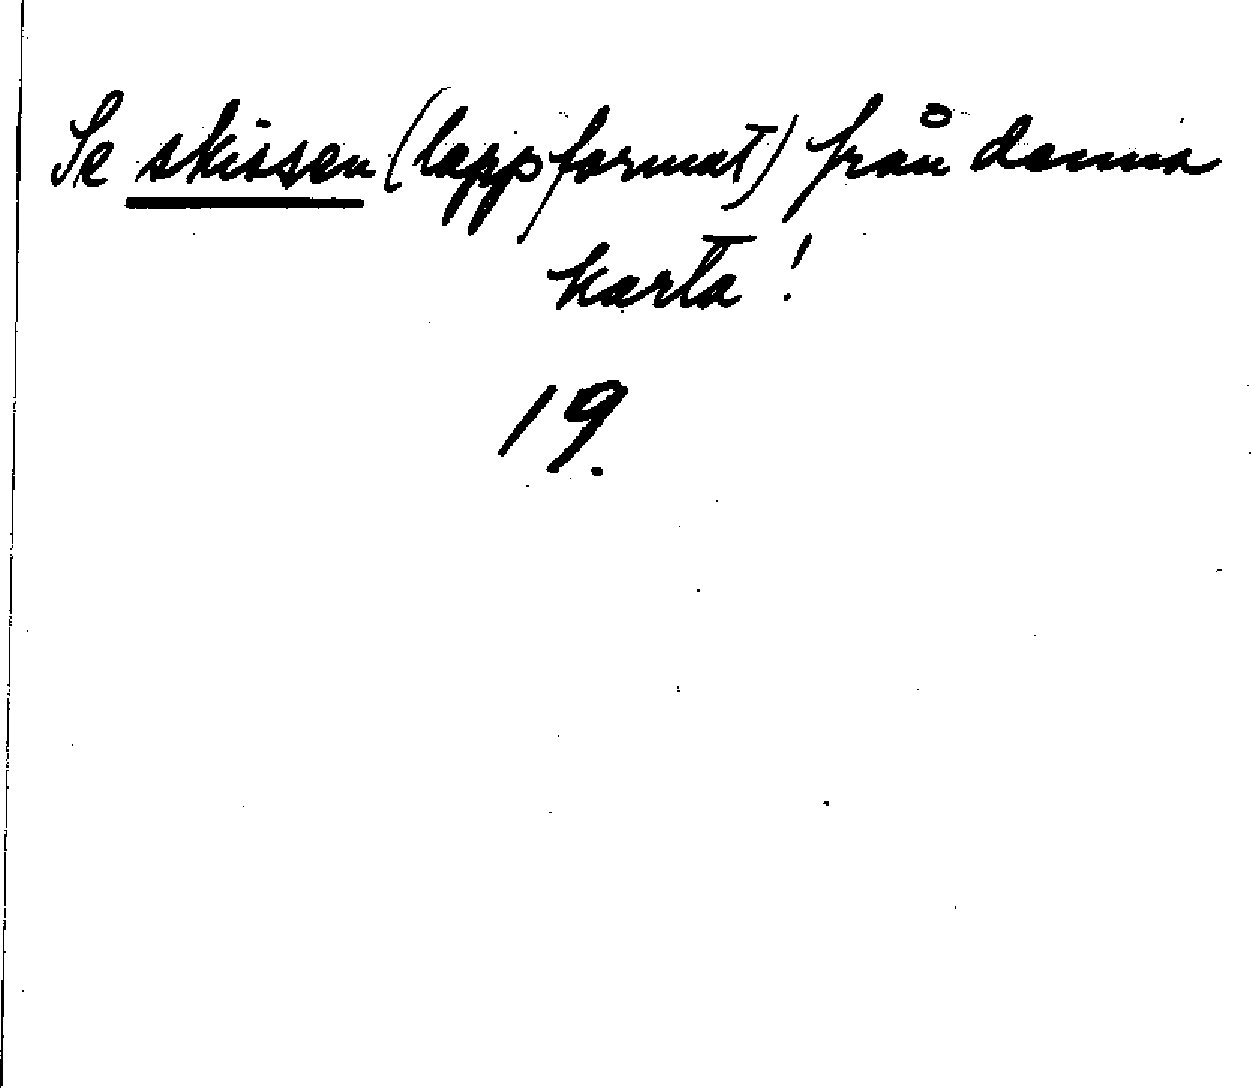 Se skissen (lappformat) från denna
karta!
19.